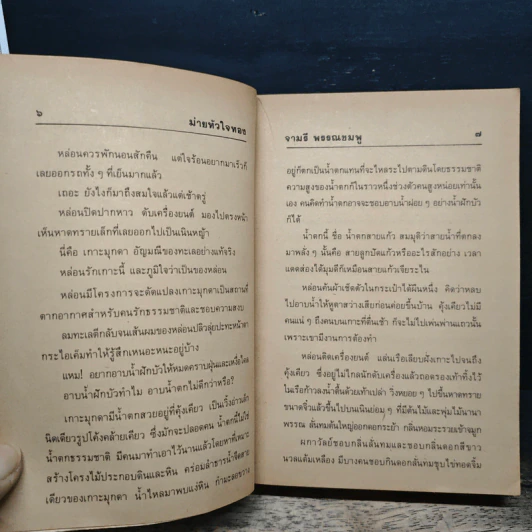 ๖
ม่ายหัวใจทอง
หล่อนควรพักนอนสักคืน แต่ใจร้อนอยากมาเร็วก็
เลยออกรถทั้ง ๆ ที่เย็นมากแล้ว
เถอะ ยังไงก็มาถึงสมใจแล้วแต่เช้าตรู่
หล่อนปิดปากหาว ดับเครื่องยนต์ มองไปตรงหน้า
เห็นหาดทรายเล็กที่เลยออกไปเป็นเนินหญ้า
นี่คือ เกาะมุกดา อัญมณีของทะเลอย่างแท้จริง
หล่อนรักเกาะนี้ และภูมิใจว่าเป็นของหล่อน
หล่อนมีโครงการจะดัดแปลงเกาะมุกดาเป็นสถานที่
ตากอากาศสำหรับคนรักธรรมชาติและชอบความสงบ
ลมทะเลตีกลับจนเส้นผมของหล่อนปลิวลุ่ยปะทะหน้าตา
กระไอเค็มทำให้รู้สึกเหนอะหนะอยู่บ้าง
แหม! อยากอาบน้ำฝักบัวให้หมดคราบฝุ่นและเหงื่อไคล
อาบน้ำฝักบัวทำไม อาบน้ำตกไม่ดีกว่าหรือ?
เกาะมุกดามีน้ำตกสวยอยู่ที่คุ้งเคียว เป็นเวิ้งอ่าวเล็ก
นิดเดียวรูปโค้งคล้ายเคียว ซึ่งมักจะปลอดคน น้ำตกนี้ไม่ใช่
น้ำตกธรรมชาติ มีคนมาทำเอาไว้นานแล้วโดยหาที่เหมาะ
สร้างโครงไม้ประกอบดินและหิน คร่อมลำธารน้ำจืดสาย
เดียวของเกาะมุกดา น้ำไหลมาพบแง่หิน
จามรี พรรณชมพู
๗
อยู่ก็ตกเป็นน้ำตกแทนที่จะไหลระไปตามดินโดยธรรมชาติ
ความสูงของน้ำตกก็ในราวหนึ่งช่วงตัวคนสูงหน่อยเท่านั้น
เอง คนคิดทำน้ำตกอาจจะชอบอาบน้ำฝอย ๆ อย่างน้ำฝักบัว
ก็ได้
น้ำตกนี้ ชื่อ น้ำตกสายแก้ว สมมุติว่าสายน้ำที่ตกลง
มาพลั่ง ๆ นั้นคือ สายลูกปัดแก้วหรืออะไรสักอย่าง เวลา
แดดส่องได้มุมดีก็เหมือนสายแก้วเจียระไน
หล่อนค้นผ้าเช็ดตัวในกระเป๋าได้ผืนหนึ่ง คิดว่าหลบ
ไปอาบน้ำให้หูตาสว่างเสียก่อนค่อยขึ้นบ้าน คุ้งเคียวไม่มี
คนแน่ ๆ ถึงคนบนเกาะที่ตื่นเช้า ก็จะไม่ไปเพ่นพ่านแถวนั้น
เพราะเขามีงานการต้องทำ
หล่อนติดเครื่องยนต์ แล่นเรือเลียบฝั่งเกาะไปจนถึง
คุ้งเคียว ซึ่งอยู่ไม่ไกลนักดับเครื่องแล้วถอดรองเท้าทิ้งไว้
ในเรือก้าวลงน้ำตื้นด้วยเท้าเปล่า วิ่งหยอย ๆ ไปขึ้นหาดทราย
ขนาดจิ๋วแล้วขึ้นไปบนเนินย่อม ๆ ที่มีต้นไม้และพุ่มไม้นานา
พรรณ ลั่นทมต้นใหญ่ออกดอกระย้า กลิ่นหอมระรวยเข้าจมูก
ผกาวัลย์ชอบกลิ่นลั่นทมและชอบกลีบดอกสีขาว
นวลแต้มเหลือง มีบางคนชอบกินดอกลั่นทมชุบไข่ทอดจิ้ม